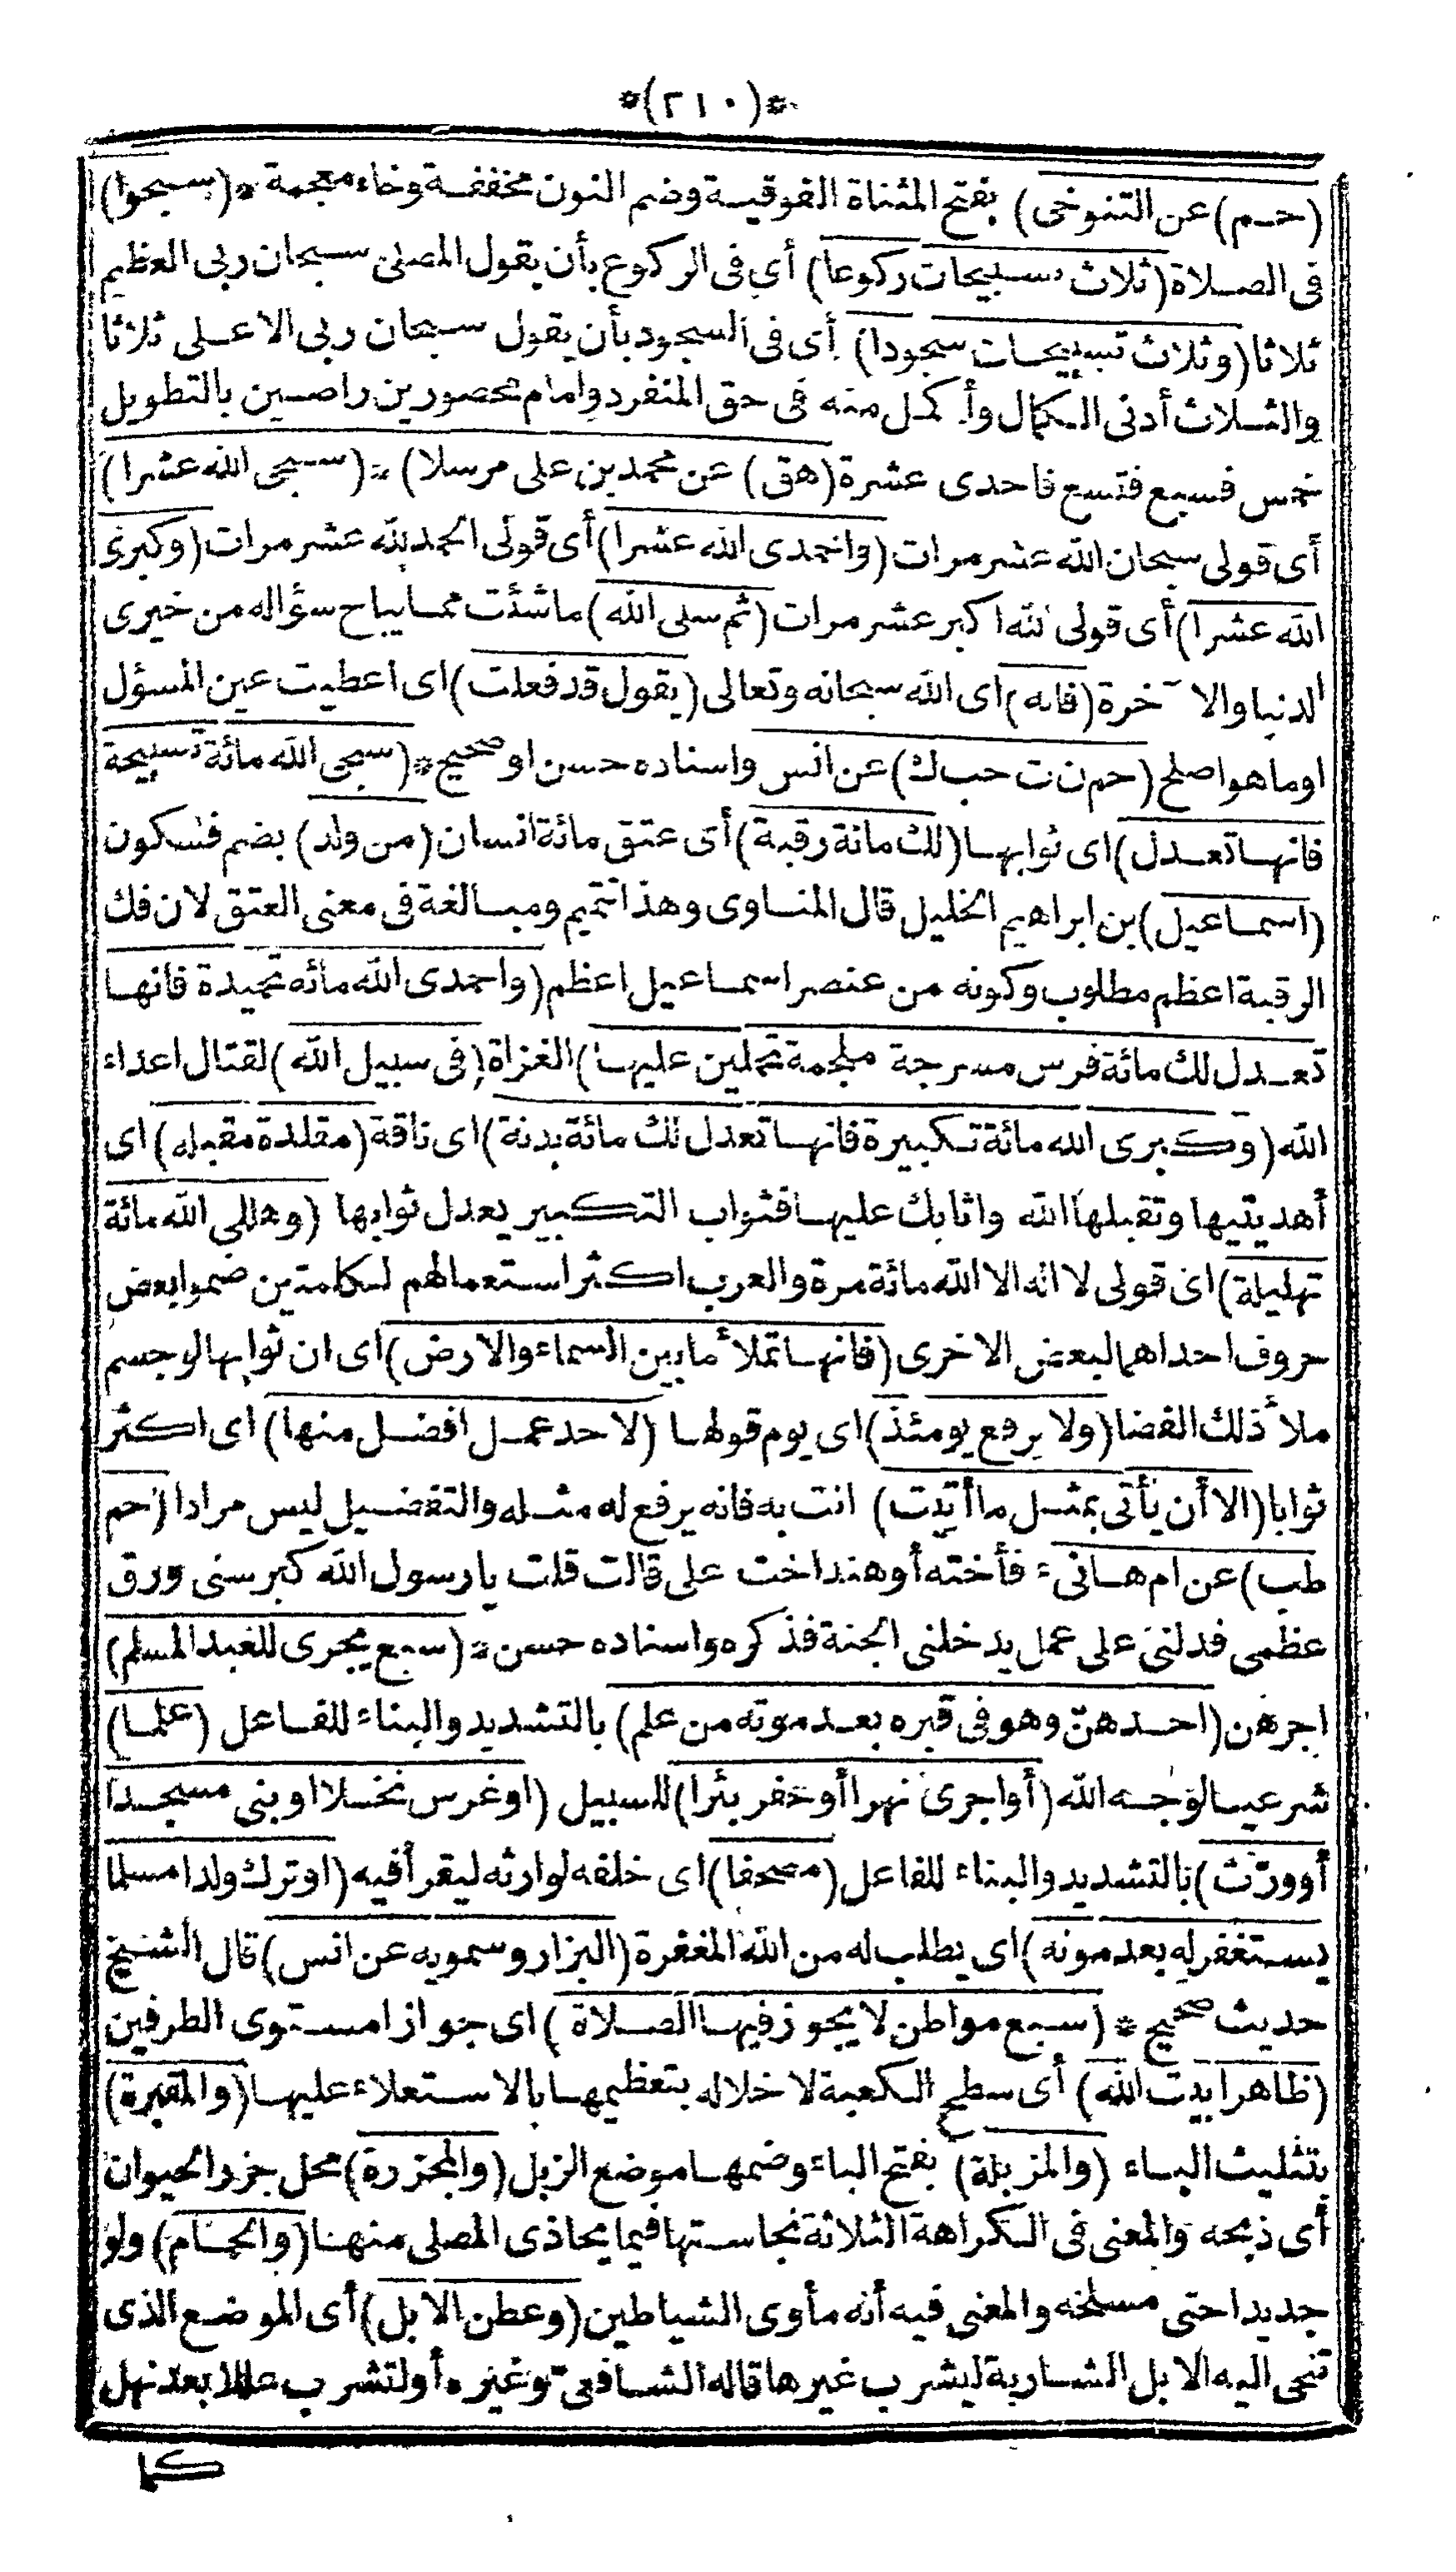 *(٢١٠)*
(حم) عن التنوخى) بفتح المثناة الفوقية وضم النون مخففة وخاء معجمة *(سبحوا)
فى الصلاة (ثلاث تسبيحات ركوعا) أى فى الركوع بأن يقول المصلى سبحان ربى العظيم
ثلاثا (وثلاث تسبيحات سجودا) أى فى السجود بأن يقول سبحان ربى الاعلى ثلاثا
والثلاث أدنى الكمال وأكمل منه فى حق المنفرد وامام محصورين راضين بالتطويل
خمس فسبع فتسع فاحدى عشرة (هق) عن محمد بن على مرسلا) *(سبحى الله عشرا)
أى قولى سبحان الله عشر مرات (واحمدى الله عشرا) أى قولى الحمد لله عشر مرات (وكبرى
الله عشرا) أى قولى الله اكبر عشر مرات (ثم سلى الله) ما شئت مما يباح سؤاله من خيرى
الدنيا والا خرة (فانه) اى الله سبحانه وتعالى (يقول قد فعلت) اى اعطيت عين المسؤل
اوما هو اصلح (حم ن ت حب ك) عن انس واسناده حسن او صحيح *(سبحى الله مائة تسبيحة
فانها تعدل) اى ثوابها (لك مائة رقبة) أى عتق مائة انسان (من ولد) بضم فسكون
(اسماعيل) بن ابراهيم الخليل قال المناوى وهذا تتميم ومبالغة فى معنى العتق لان فك
الرقبة اعظم مطلوب وكونه من عنصر اسماعيل اعظم (واحمدى الله مائه تحميدة فانها
تعدل لك مائة فرس مسرجة ملجمة تحملين عليها) الغزاة (فى سبيل الله) لقتال اعداء
الله (وكبرى الله مائة تكبيرة فانها تعدل لك مائة بدنة) اى ناقة (مقلدة مقبله) اى
أهديتيها وتقبلها الله واثابك عليها فثواب التكبير يعدل ثوابها (وهللى الله مائة
تهليلة) اى قولى لا اله الا الله مائة مرة والعرب اكثر استعمالهم لكلمتين ضموا بعض
حروف احداهما لبعض الاخرى (فانها تملأ ما بين السماء والارض) اى ان ثوابها لو جسم
ملأ ذلك الفضا (ولا يرفع يومئذ) اى يوم قولها (لاحد عمل افضل منها) اى اكثر
ثوابا (الا أن يأتى بمثل ما أتيت) انت به فانه يرفع له مثله والتفضيل ليس مرادا (حم
طب) عن ام هانىء فأخته أو هند اخت على قالت قلت يا رسول الله كبر سنى ورق
عظمى فدلنى على عمل يدخلنى الجنة فذكره واسناده حسن *(سبع يجرى للعبد المسلم)
اجرهن (احدهن وهو فى قبره بعد موته من علم) بالتشديد والبناء للفاعل (علما)
شرعيا لوجه الله (أو اجرى نهرا أو حفر بئرا) للسبيل (او غرس نخلا او بنى مسجدا
أوورّث) بالتشديد والبناء للفاعل (مصحفا) اى خلفه لوارثه ليقرأ فيه (او ترك ولدا مسلما
يستغفر له بعد موته) اى يطلب له من الله المغفرة (البزار وسمويه عن انس) قال الشيخ
حديث صحيح *(سبع مواطن لا يجوز فيها الصلاة) اى جوازا مستوى الطرفين
(ظاهر ا بيت الله) أى سطح الكعبة لاخلاله بتعظيمها بالاستعلاء عليها (والمقبرة)
بتثليث الباء (والمزبلة) بفتح الباء وضمها موضع الزبل (والمجزرة) محل جزر الحيوان
أى ذبحه والمعنى فى الكراهة الثلاثة نجاستها فيما يحاذى المصلى منها (والحمام) ولو
جديدا حتى مسلخه والمعنى فيه أنه مأوى الشياطين (وعطن الابل) أى الموضع الذى
تنحى اليه الابل الشاربة ليشرب غيرها قاله الشافعىّ وغيره أو لتشرب عللا بعد نهل
كما